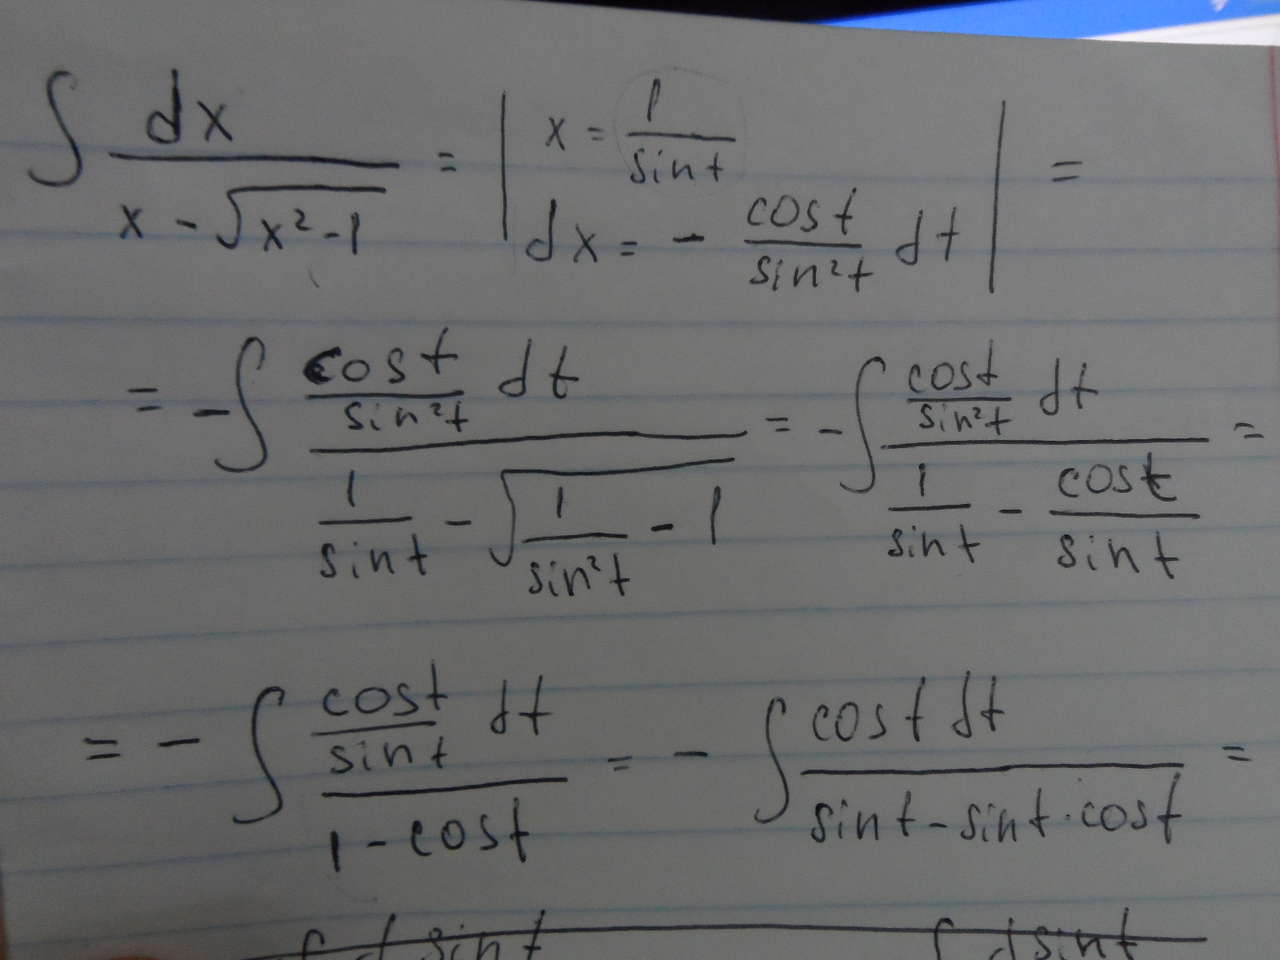 ∫ dx / (x - √(x² - 1)) = | x = 1 / sin t, dx = - cos t / sin² t dt | =
= - ∫ (cos t / sin² t dt) / (1 / sin t - √(1 / sin² t - 1)) = - ∫ (cos t / sin² t dt) / (1 / sin t - cos t / sin t) =
= - ∫ (cos t / sin t dt) / (1 - cos t) = - ∫ cos t dt / (sin t - sin t · cos t) =
∫ d sin t ∫ d sin t